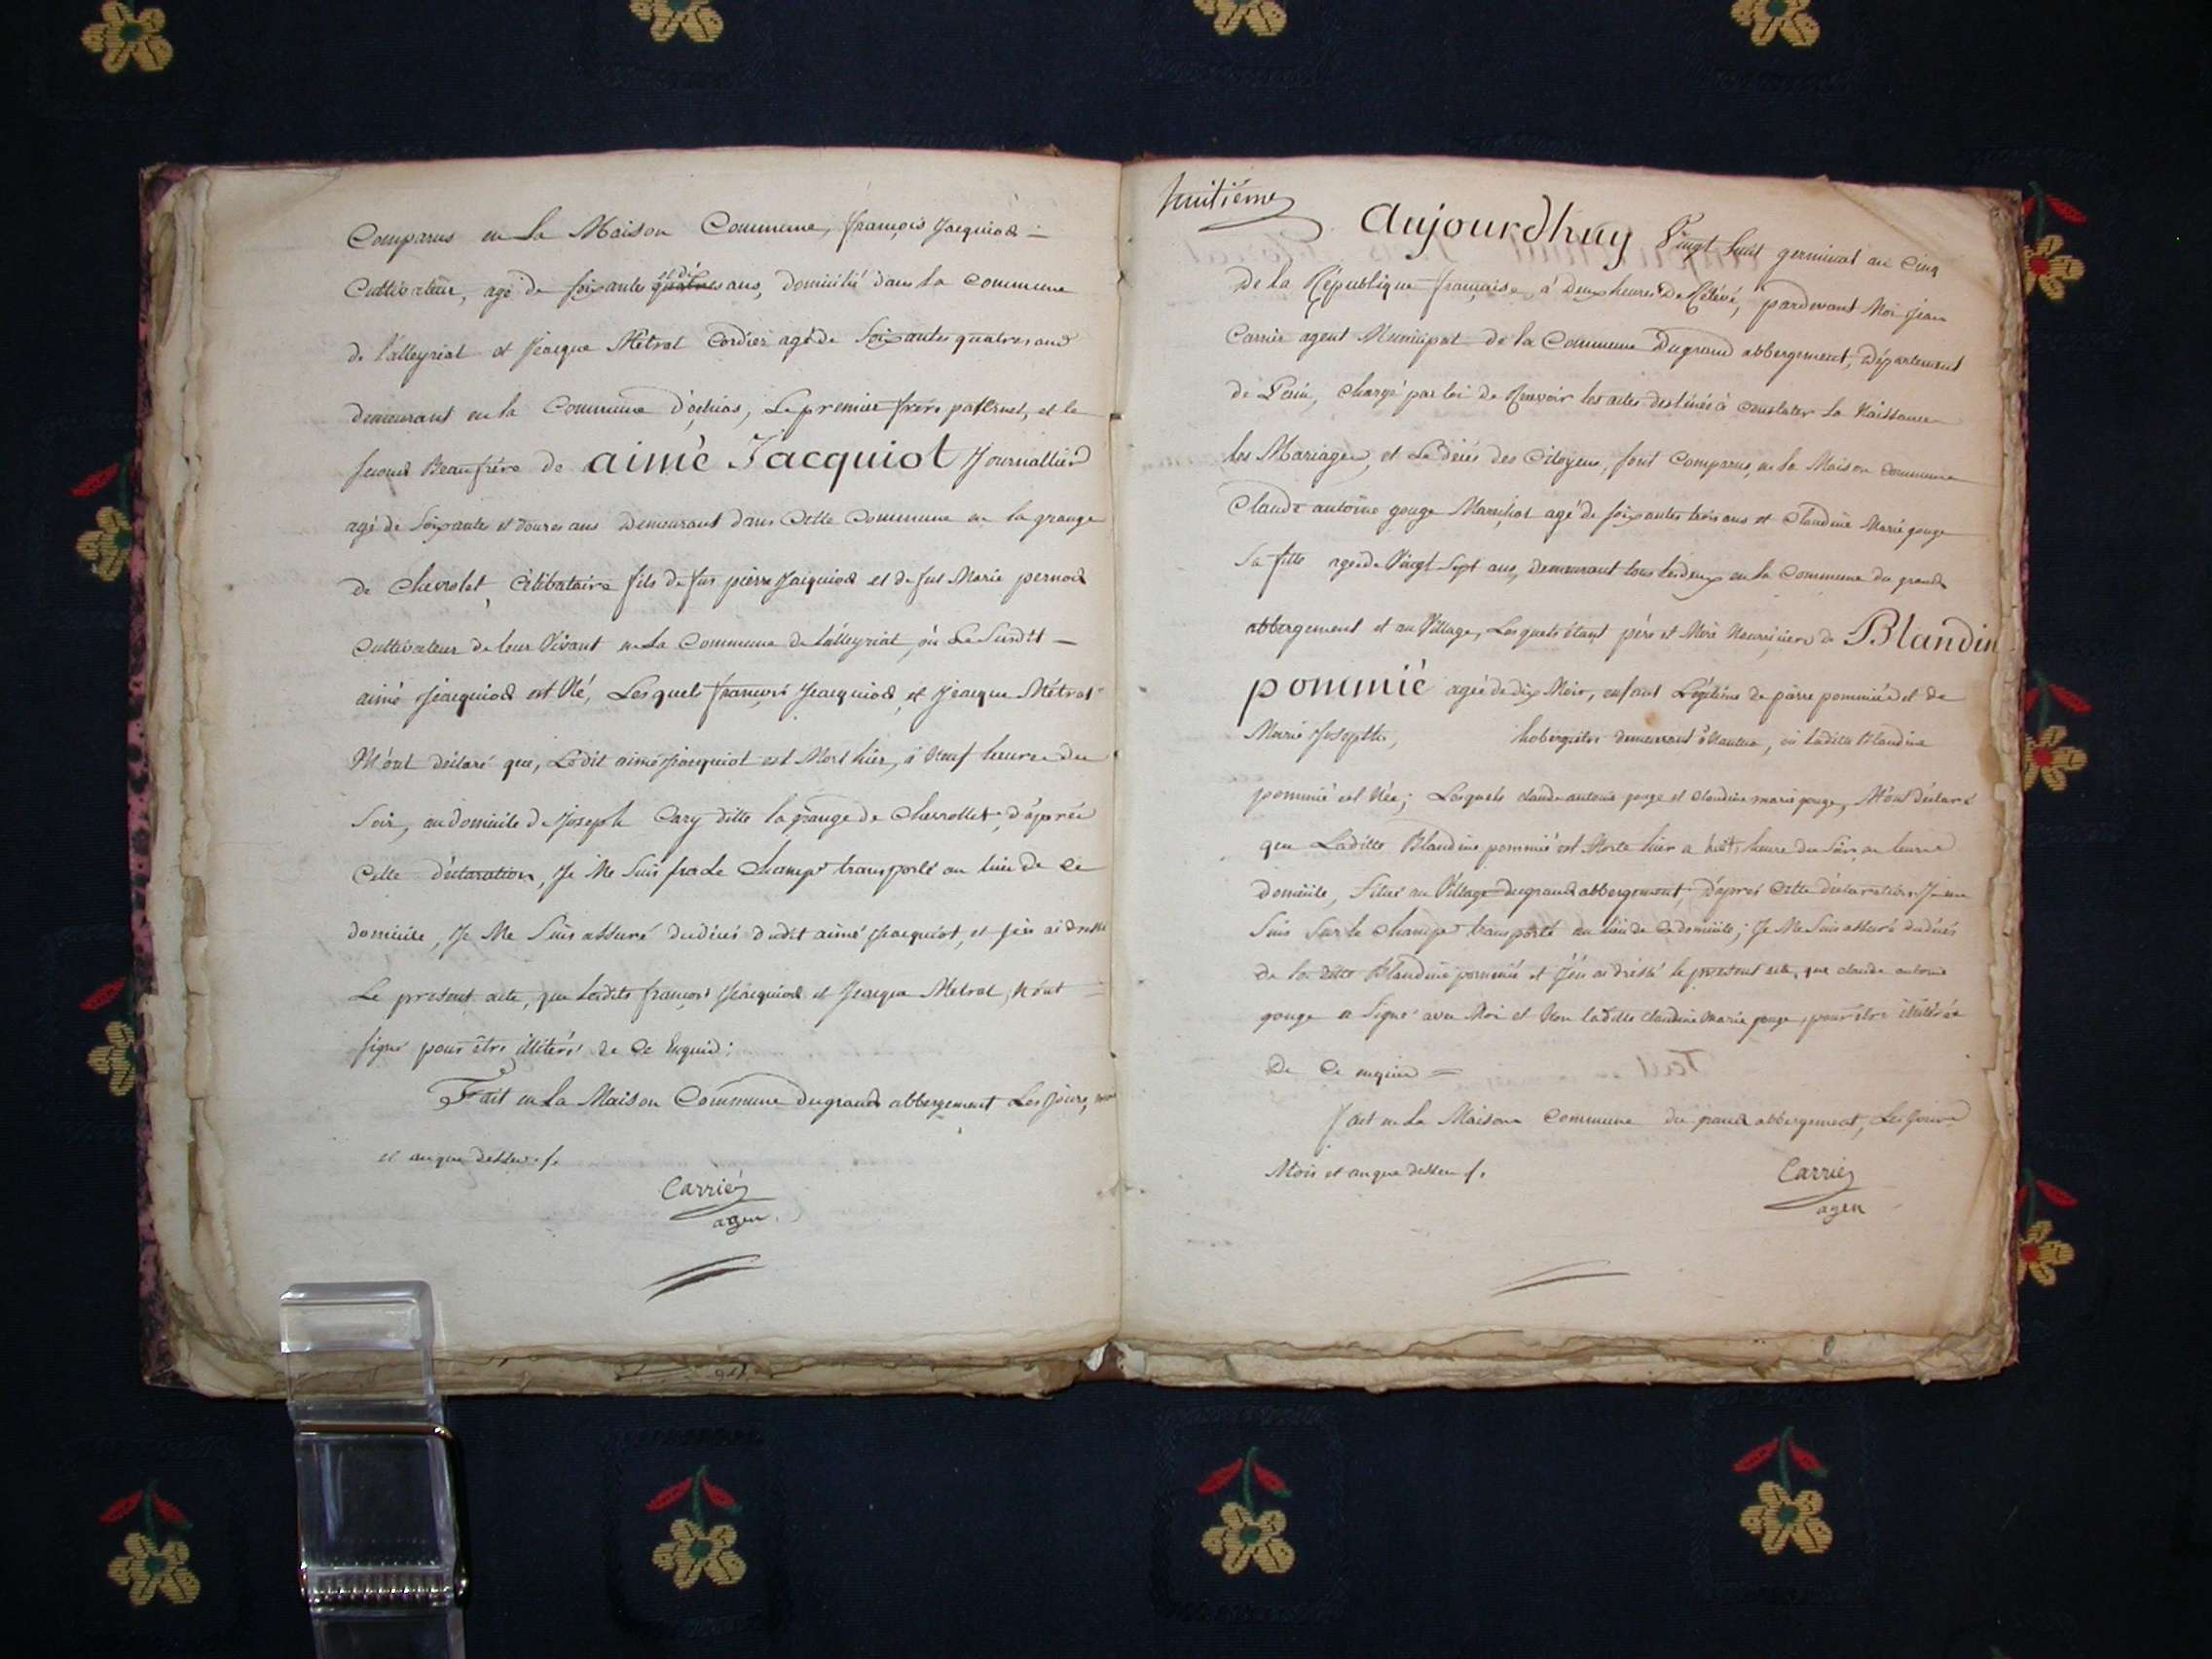 Comparus en La Maison Commune, françois Jacquiod =
Cultivateur, agé de soixantes et dix ans, domicilié dans la Commune
de lalleyriat et Jacque Métral Cordier agé de Soixantes quatres ans
demeurant en la Commune d'ochias, Le premier frère paternel, et le
second Beaufrère de aimé Jacquiot Journallier
agé de Soixante et douzes ans demeurant dans Cette Commune en la grange
de Chevrolet, Célibataire fils de fus pierre Jacquiod et de fut Marie pernod
Cultivateur de leur Vivant en La Commune de lalleyriat, où Le Susdit =
aimé Jacquiod est Né, Lesquels françois Jacquiod, et Jacque Métral
M'ont déclaré que, Ledit aimé Jacquiot est Mort hier, à Neuf heures du
Soir, au domicile de Joseph Cary ditte la grange de Chevrollet, d'après
Cette déclaration, Je Me Suis sur Le Champ transporté au lieu de Ce
domicile, Je Me Suis assuré du décés dudit aimé Jacquiot, et j'en ai dressé
Le présent acte, que lesdits françois Jacquiod et Jacque Métral, N'ont =
signé pour être illitéré de Ce Enquis :
Fait en La Maison Commune du grand abbergement Les Jours, mois
et an que dessus /.
Carrier
agen
huitième
Aujourdhuy Vingt huit germinal an Cinq
de la République française à deux heures De Relévé, pardevant Moi Jean
Carrier agent Municipal de la Commune Du grand abbergement, département
de L'ain, Chargé par loi de Recevoir les actes destinés à Constater La Naissance
les Mariages, et Le décés des Citoyens, sont Comparus, en la Maison commune
Claude antoine gouge Maréchal agé de soixantes trois ans et Claudine Marie gouge
Sa fille agée de Vingt Sept ans, demeurant tous les deux en la Commune du grand
abbergement et au Village, Lesquels étant père et Mère Nourriciers de Blandin
pommié agée de dix Mois, enfant Légitime de pierre pommié et de
Marie Josephte, hobergistes demeurant à Nantua, où Laditte Blandine
pommié est Née ; Lesquels claude antoine gouge et Claudine marie gouge, M'ont déclaré
que Laditte Blandine pommié est Morte hier a huit heure du Soir, en leurs
domicile, Situé au Village du grand abbergement, d'après Cette déclaration Je me
Suis Sur le Champ transporté au lieu de Ce domicile ; Je Me Suis assuré du décés
de la ditte Blandine pommié et J'en ai dréssé le présent acte, que claude antoine
gouge a Signé avec Moi et Non laditte Claudine Marie gouge, pour être illitérée
De Ce enquise =
fait en La Maison Commune du grand abbergement, Les Jours
Mois et an que dessus /.
Carrier
agen